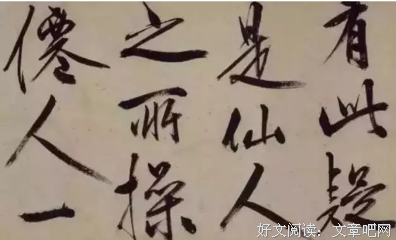 有此疑
是仙人
之所操
僊人一
好文阅读:文章吧网